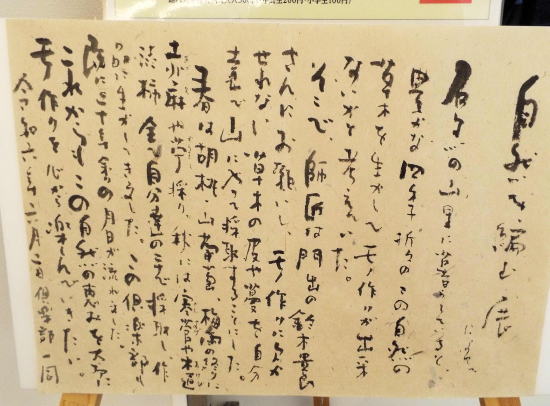 自然を編む展
の山里に
豊かな四季折々のこの自然の
草木を生かしてモノ作りが出来
ないかと考えていた。
そこで、師匠は門出の鈴木貴
さんにお願いし、モノ作りに
せれない草木の皮や蔓を自分
達で山に入って採取することにした。
春は胡桃・山葡萄、梅雨の終りに
や苧採り、秋には寒菅や木通
渋柿、全て自分達の手で採取し作
品に生かしてきました。この倶楽部も
既に二十年余の月日が流れました。
これからもこの自然の恵みを大切に
モノ作りを心から楽しんでいきたい。
令和六年二月 倶楽部一同